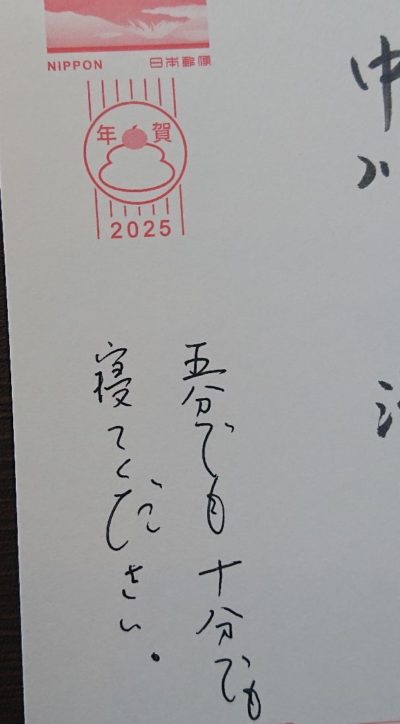 NIPPON 日本郵便
年賀
2025
中
五分でも十分でも
寝てください。